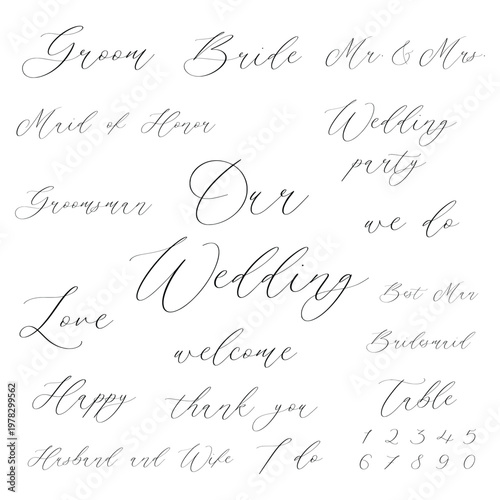 Groom Bride Mr. & Mrs.
Maid of Honor
Wedding
party
Groomsman
Our
we do
Wedding
Best Man
Love
Bridesmaid
welcome
Happy
thank you
Table
Husband and Wife I do
1 2 3 4 5
6 7 8 9 0
Adobe Stock | #1978299562